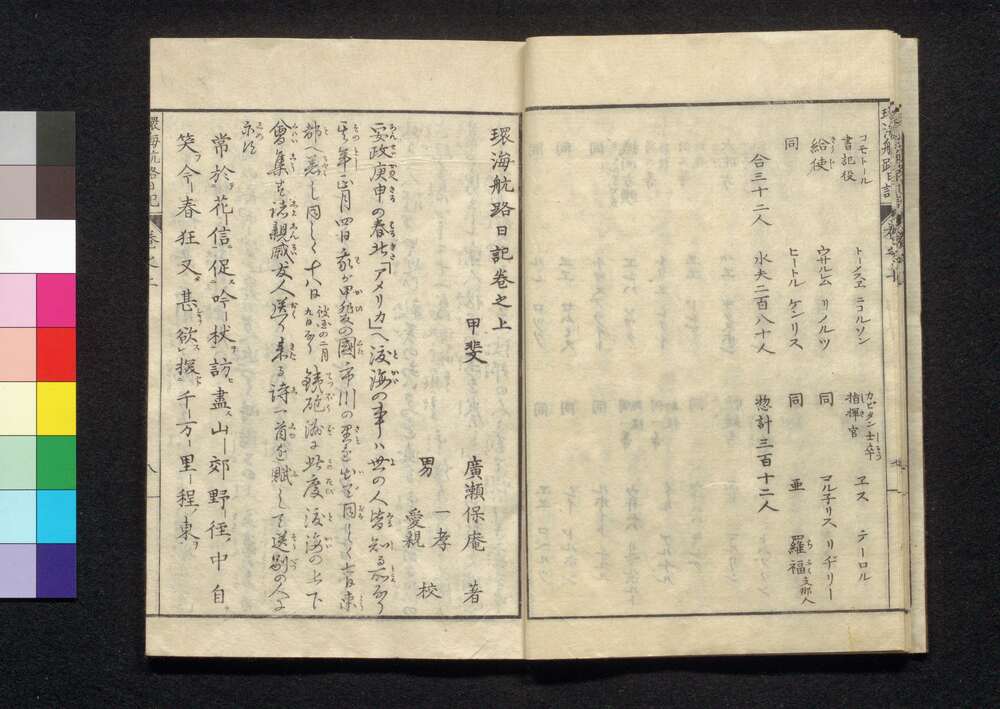 コモトール
書記役 トーメスエ ニコルソン
カピタン士卒
指揮官 ヱス テーロル
給使 ウサルム リノルツ 同 コル子リス リヂリー
同 ヒートル ケンリス 同 亜 羅福 支那人
合三十二人 水夫二百八十人 惣計三百十二人
環海航路日記卷之上
甲斐 廣瀬保庵 著
男 一孝
愛親 校
安政庚申の春北「アメリカ」へ渡海の事ハ世の人皆知る所なり
其年正月四日我が甲斐の國市川の里を出 同しく七日東
都へ着し同しく十八日 彼国の二月九日なり 鉄砲洲に此度渡海の上下
會集を諸親戚友人送り来る詩一首を賦して送別の人に
示す
常於花信促吟杖訪盡山郊野徑中自
笑今春狂又甚欲探千万里程東